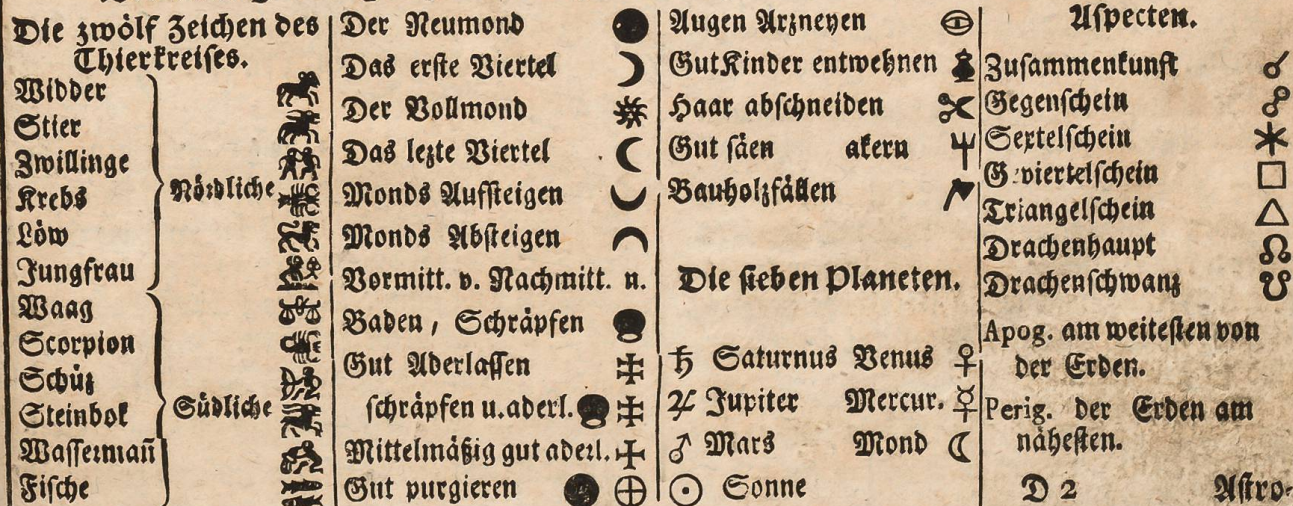 Die zwölf Zeichen des
Thierkreises.
Widder
Stier
Zwillinge
Krebs
Löw
Jungfrau
Nördliche
Waag
Scorpion
Schüz
Steinbok
Wassermañ
Fische
Südliche
Der Neumond
Das erste Viertel
Der Vollmond
Das lezte Viertel
Monds Aufsteigen
Monds Absteigen
Vormitt. v. Nachmitt. n.
Baden, Schräpfen
Gut Aderlassen
schräpfen u. aderl.
Mittelmäßig gut aderl.
Gut purgieren
Augen Arzneyen
Gut Kinder entwehnen
Haar abschneiden
Gut säen akern
Bauholzfällen
Die sieben Planeten.
♄ Saturnus Venus ♀
♃ Jupiter Mercur. ☿
♂ Mars Mond ☾
☉ Sonne
Aspecten.
Zusammenkunft ☌
Gegenschein ☍
Sextelschein ⚹
Geviertelschein □
Triangelschein △
Drachenhaupt ☊
Drachenschwanz ☋
Apog. am weitesten von
der Erden.
Perig. der Erden am
nähesten.
D 2 Astro-